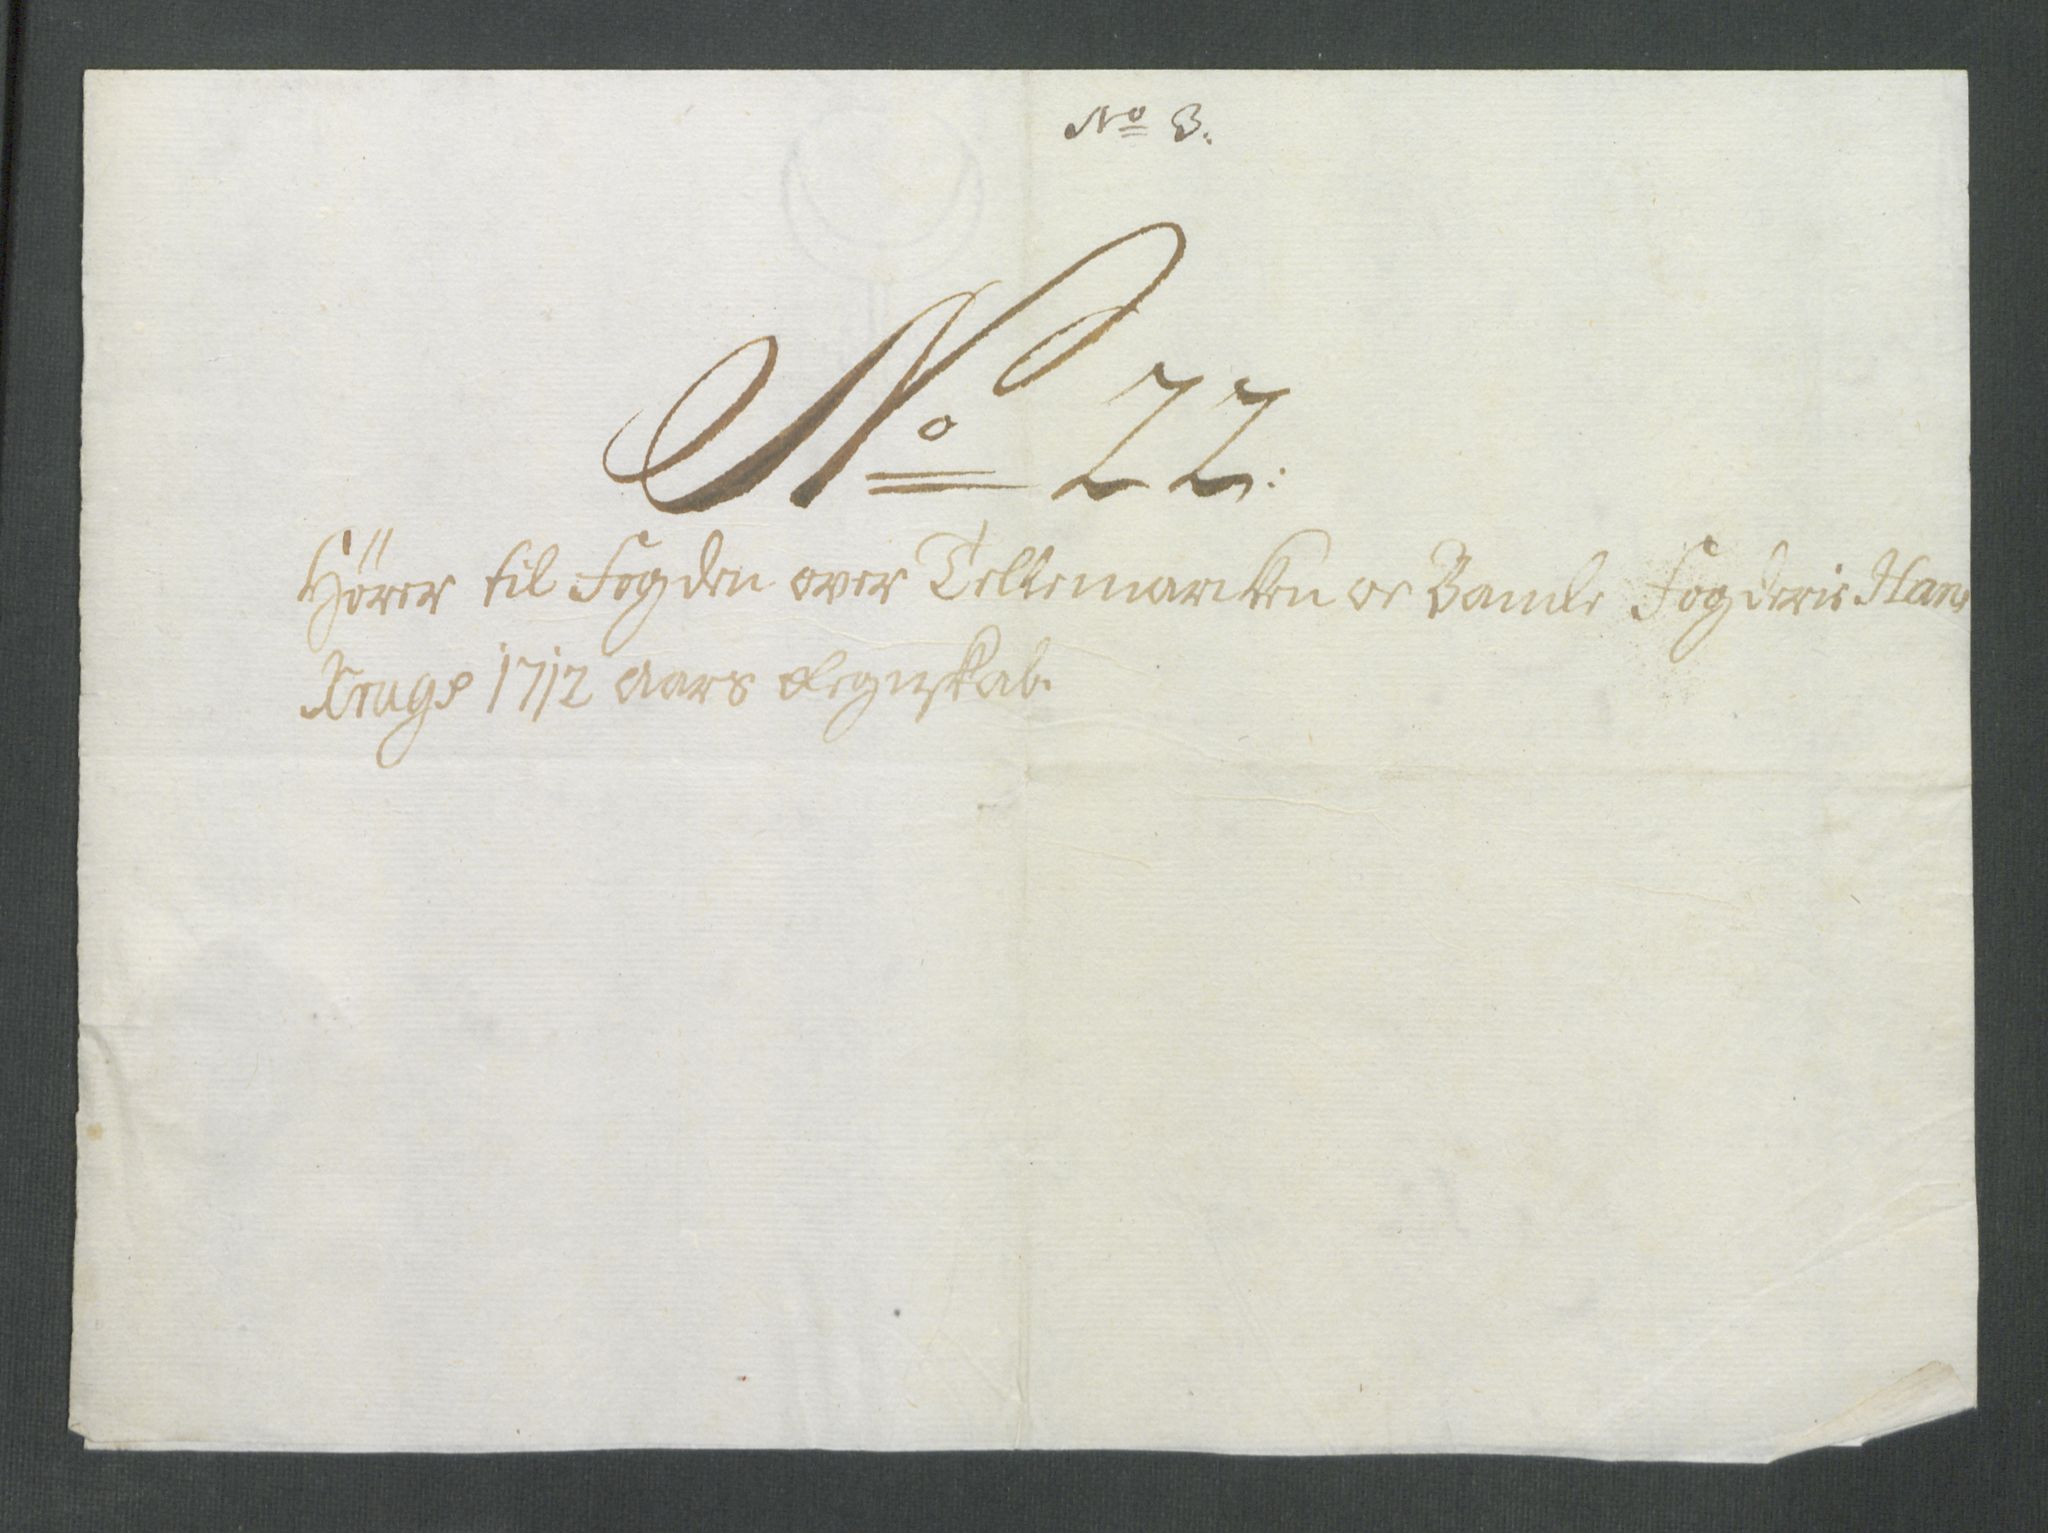 No 3.
No 22:
Hører til Fogden over Tellemarcken oc Bamle Fogderie Hans
Krugs 1712 Aars Regnskab.